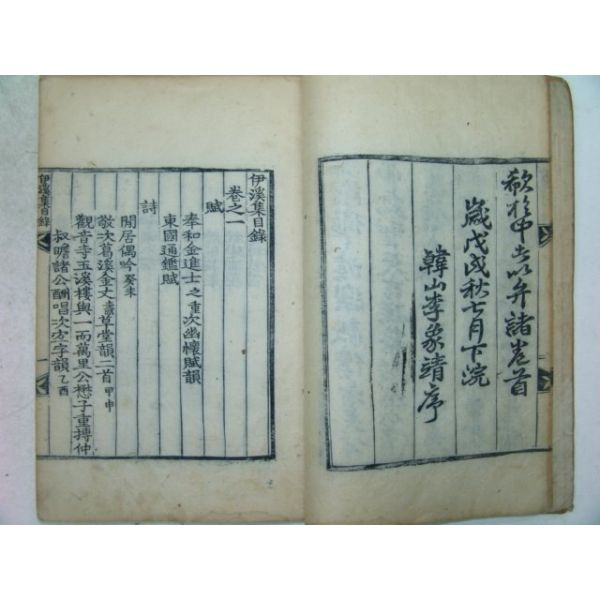 歎於中者以弁諸卷首
歲戊戌秋七月下浣
韓山李象靖序
伊溪集目錄
卷之一
賦
奉和金進士之重次幽懷賦韻
東國通鑑賦
詩
閒居偶吟癸未
敬次葛溪金丈草堂韻二首甲申
觀音寺玉溪樓與一而萬里公懋子重摶仲
叔瞻諸公酬唱次字韻乙酉
伊溪集目錄